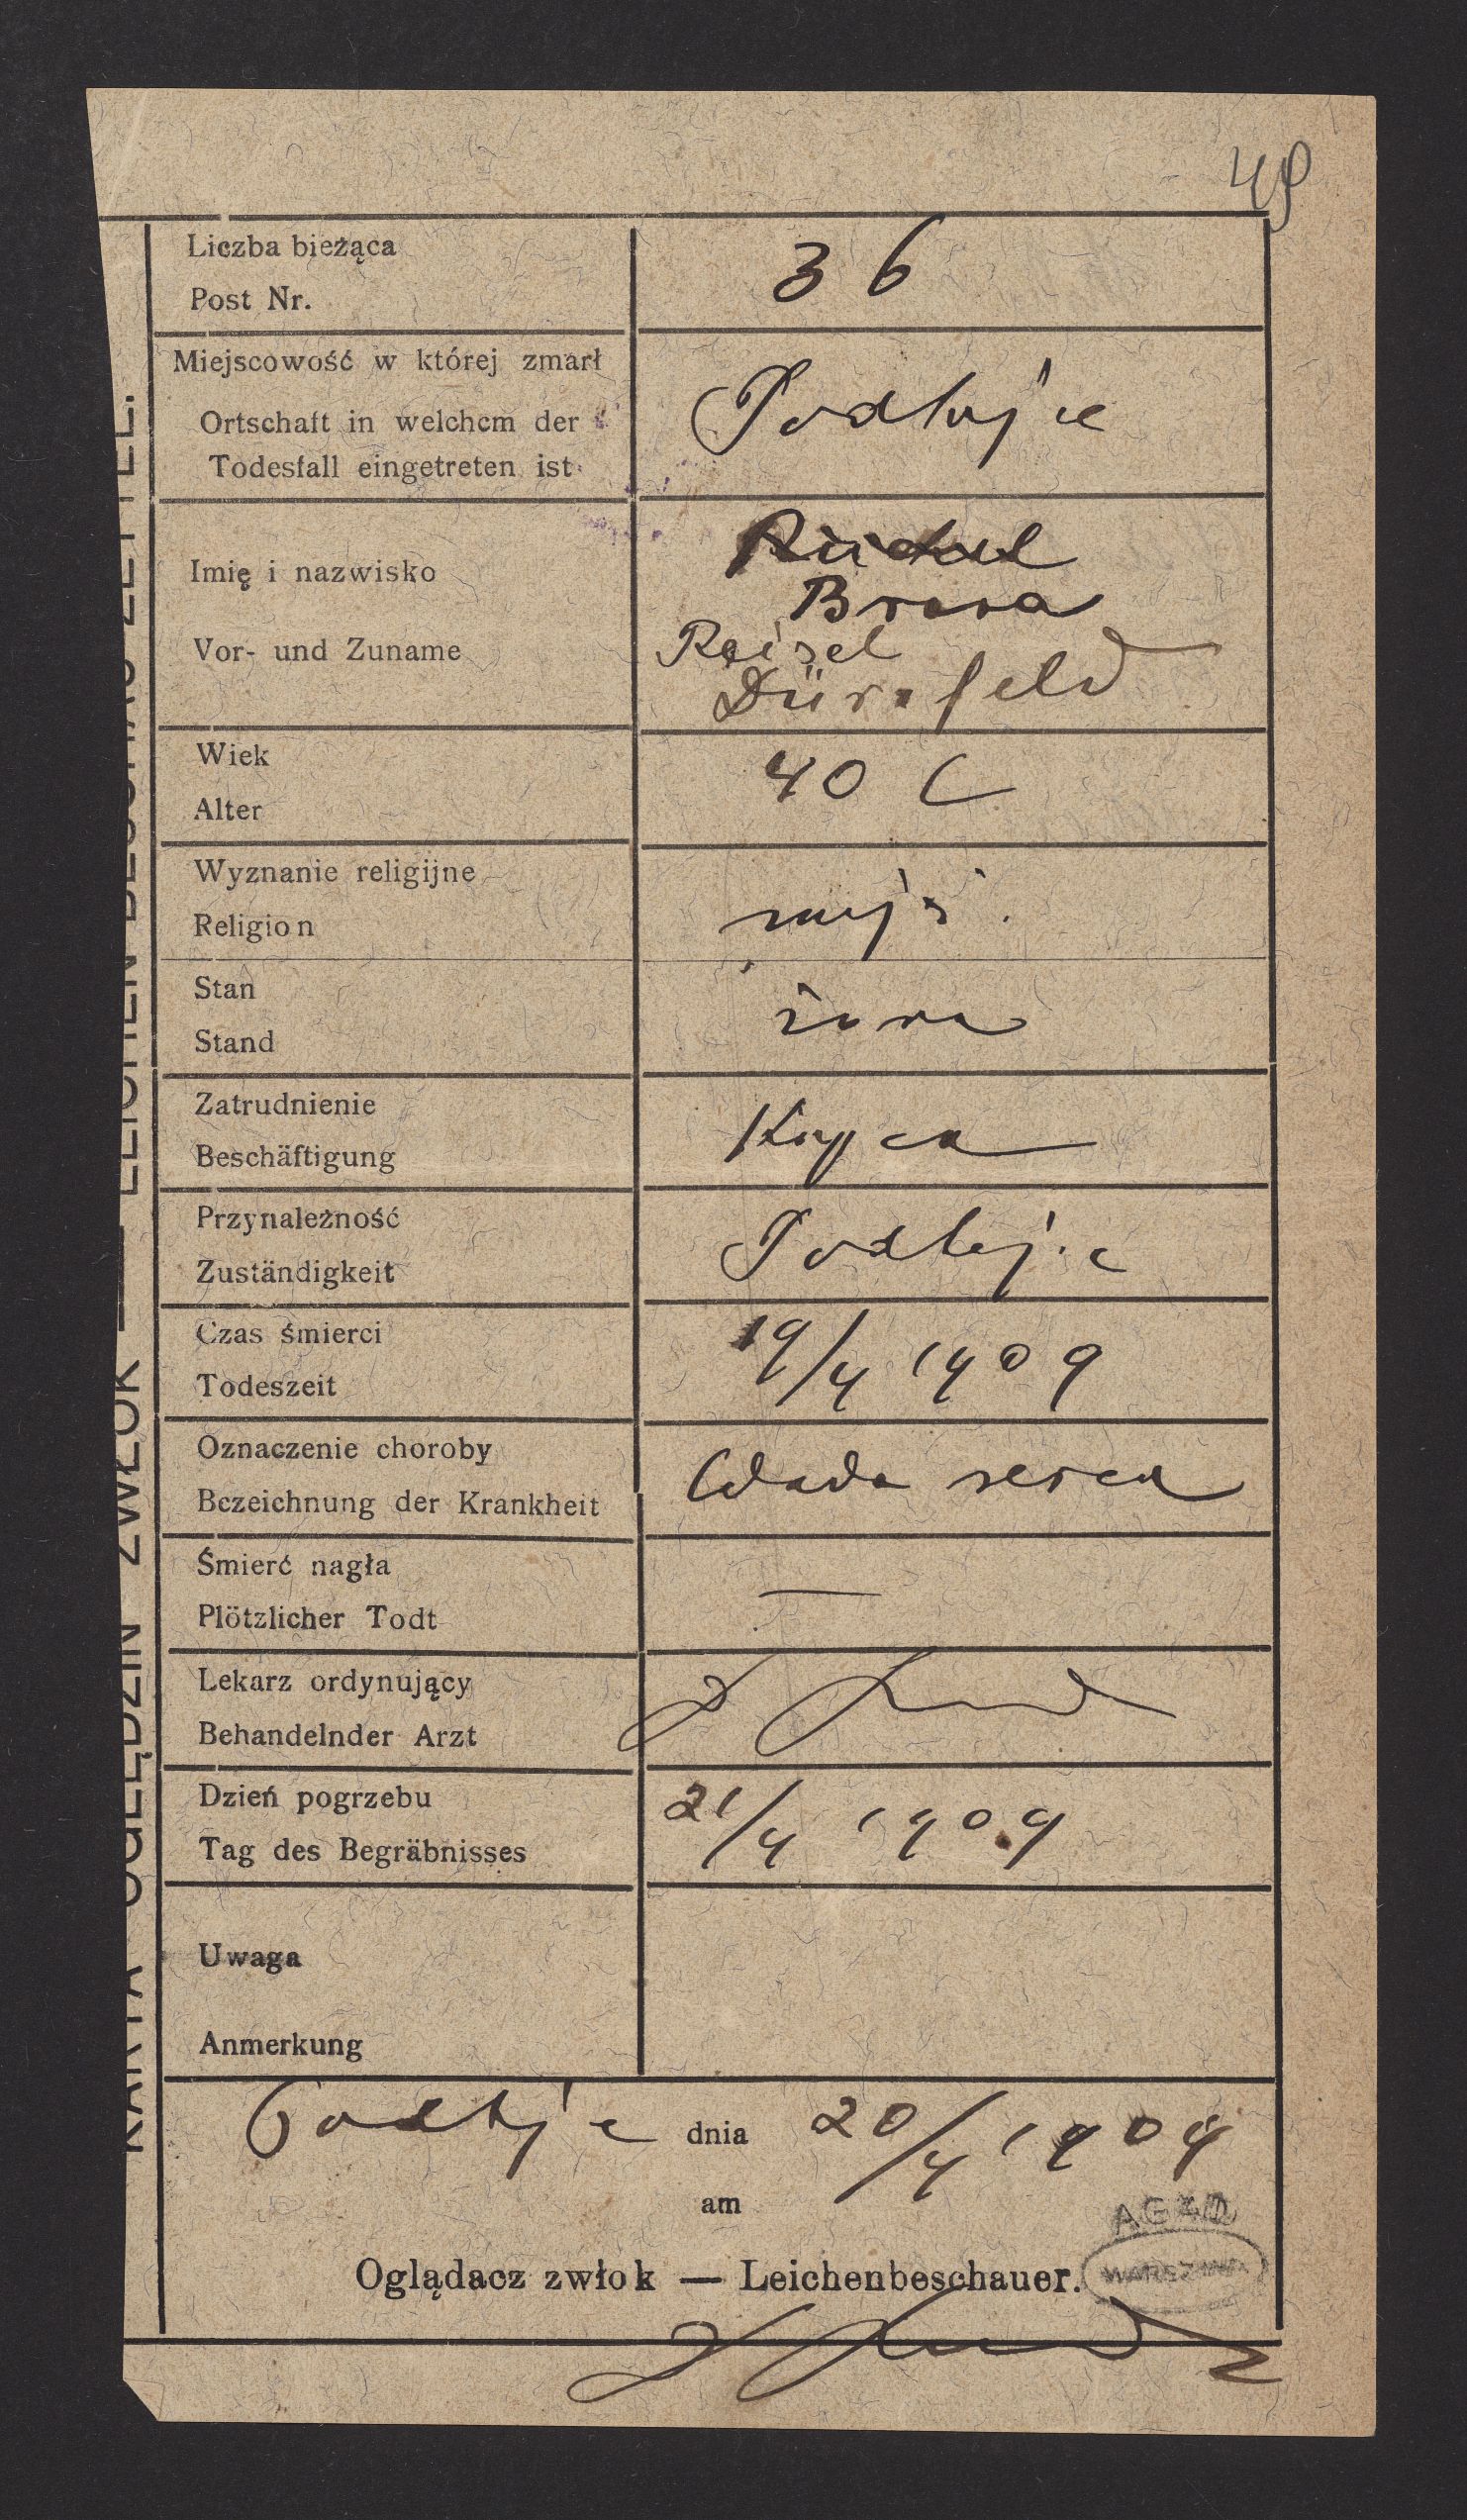 49
Liczba bieżąca
Post Nr.
36
Miejscowość w której zmarł
Ortschaft in welchem der
Todesfall eingetreten ist
Podhajce
Imię i nazwisko
Vor- und Zuname
Brana
Reisel
Dürnfeld
Wiek
Alter
40
Wyznanie religijne
Religion
mojż.
Stan
Stand
żona
Zatrudnienie
Beschäftigung
Kupca
Przynależność
Zuständigkeit
Podhajce
Czas śmierci
Todeszeit
19/4 1909
Oznaczenie choroby
Bezeichnung der Krankheit
Wada serca
Śmierć nagła
Plötzlicher Todt
—
Lekarz ordynujący
Behandelnder Arzt
Dzień pogrzebu
Tag des Begräbnisses
21/4 1909
Uwaga
Anmerkung
Podhajce dnia 20/4 1909
am
AGAD
WARSZAWA
Oglądacz zwłok — Leichenbeschauer.
KARTA OGLĘDZIN ZWŁOK — LEICHEN-BESCHAU-ZETTEL.